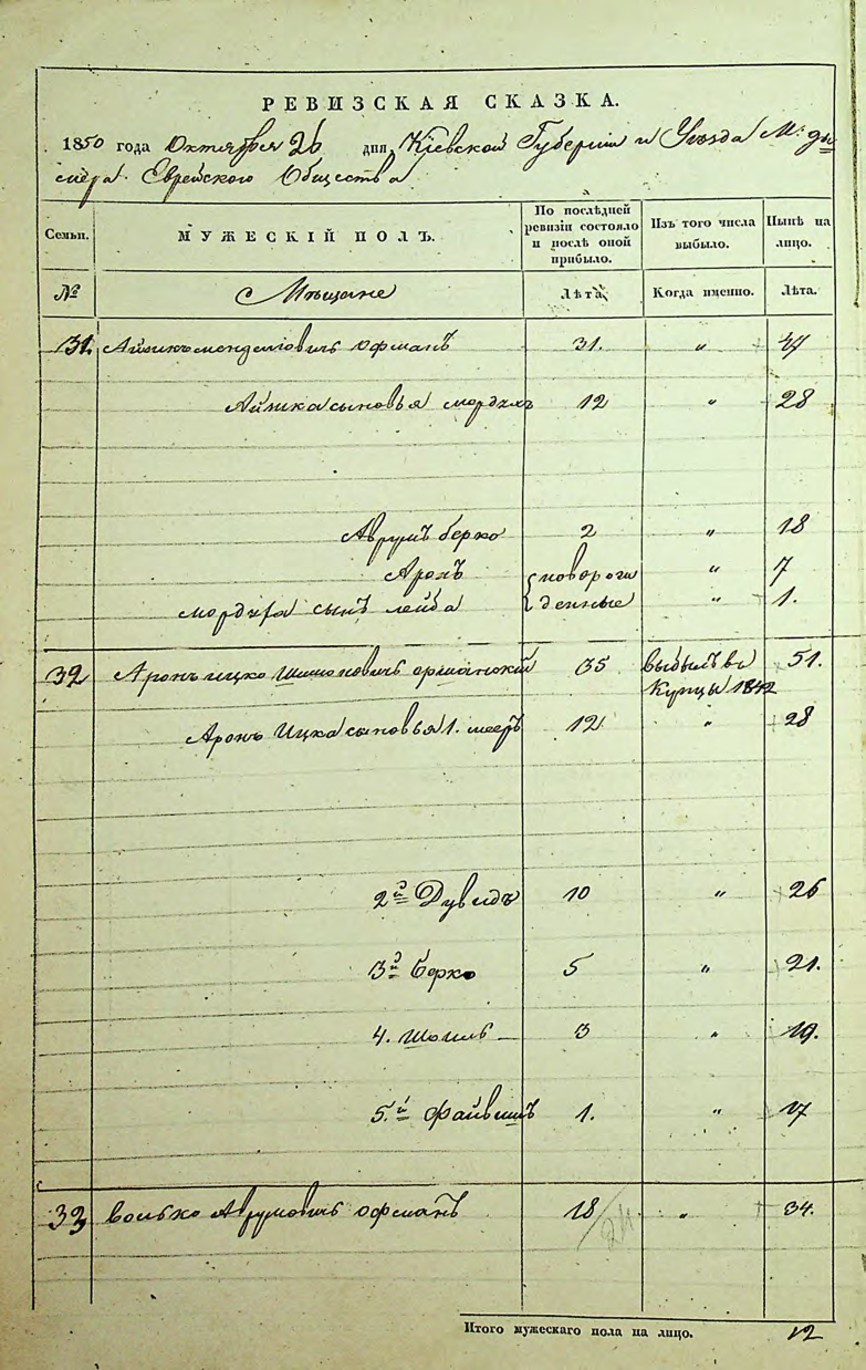 РЕВИЗСКАЯ СКАЗКА.
1850 года Октября 26 дня Кіевской Губерніи и Уѣзда М: Ды
мера Еврейского Общества
Семьи. МУЖЕСКІЙ ПОЛЪ. По послѣдней ревизіи состояло и послѣ оной прибыло. Изъ того числа выбыло. Нынѣ на лицо.
№ Мѣщане Лѣта. Когда именно. Лѣта.
31. Айзикъ Менделіовичь Офманъ 31. " 47
Айзика сыновья Мордхъ 12 " 28
Аврумъ Берко 2 " 18
Аронъ { новорож " 7
Мордуха сынъ Лейба { денные " 1.
32 Аронъ Ицко Шимоновичь Оршанскій 35 выбылъ въ 51.
Купцы 1842
Аронъ Ицка сыновья 1. Мееръ 12 " 28
2й Дувидъ 10 " 26
3й Берко 5 " 21.
4. Шмиль 3 " 19.
5.й Файвишъ 1. " 17
33 Волько Аврумовичь Офманъ 18 " 34.
24
Итого мужескаго пола на лицо. 12